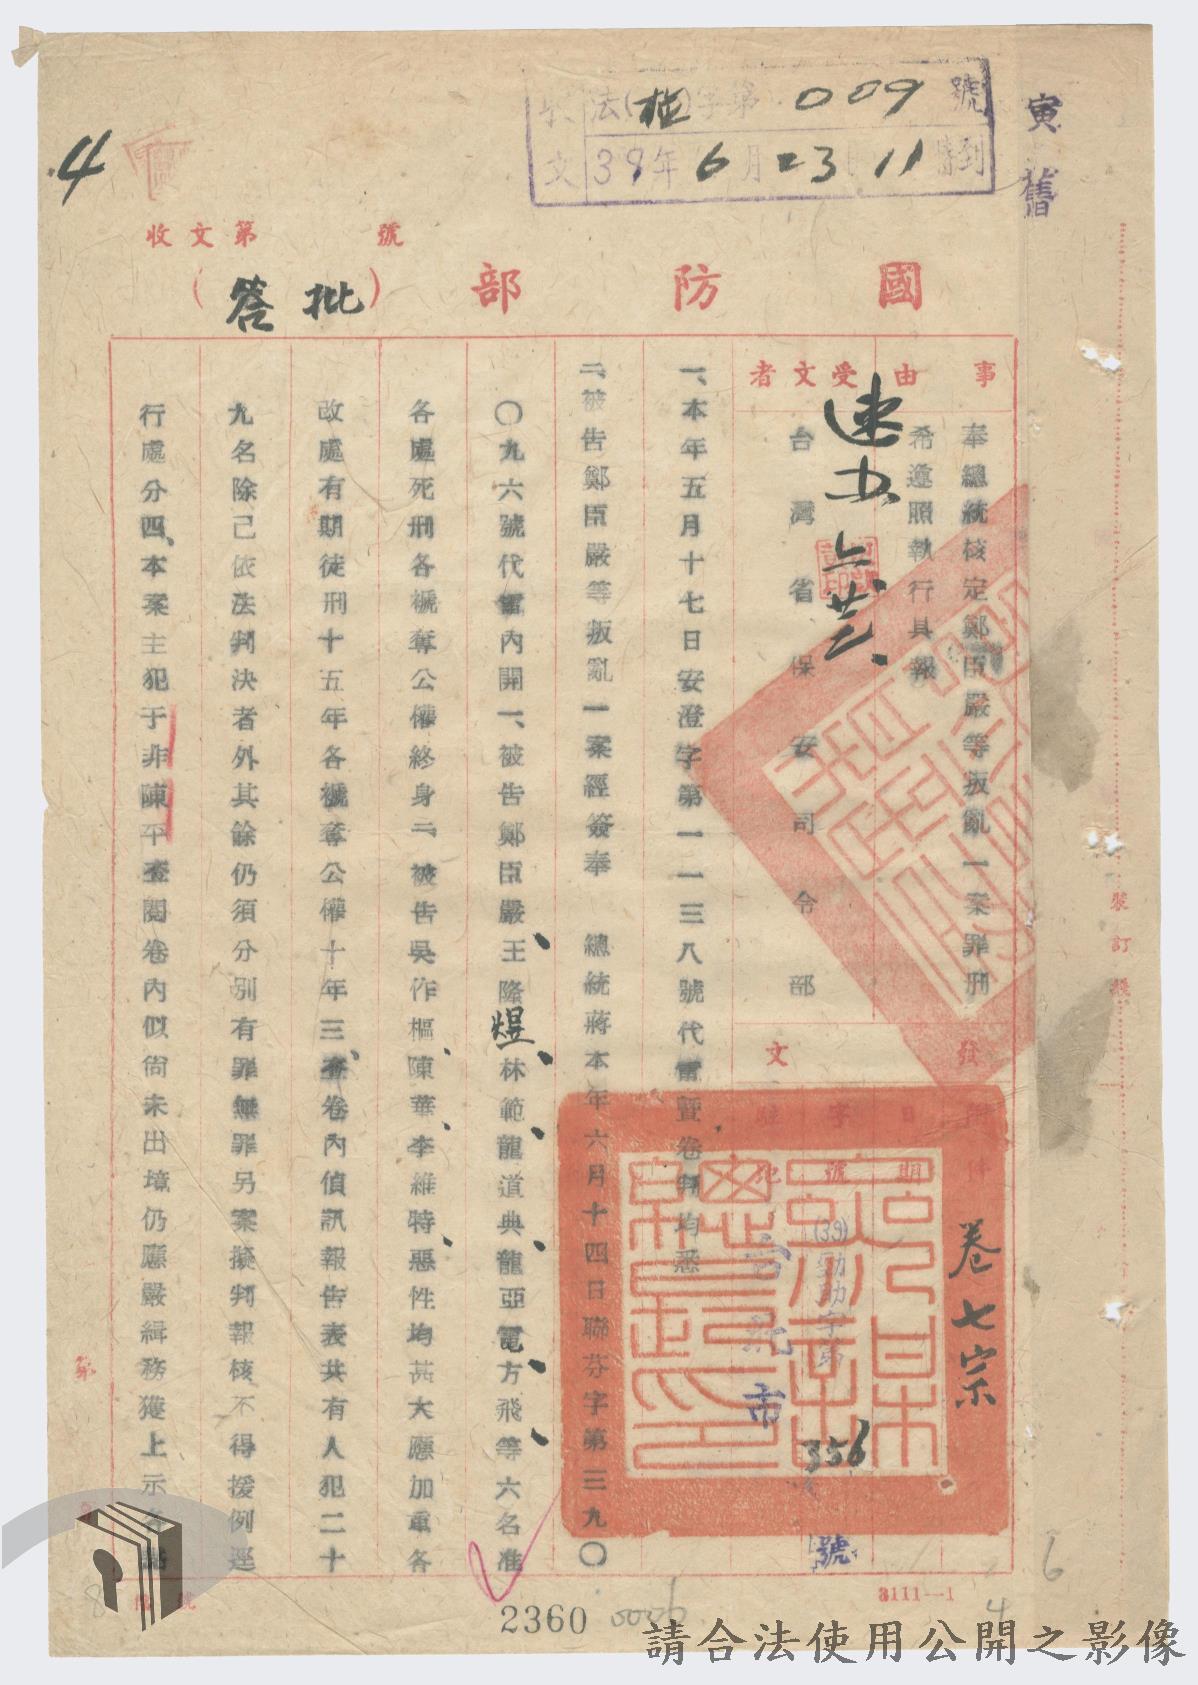 寅 舊
收文 法(檢)字第009號
39年6月23日11時到
4
收文第 號
國防部(批答)
事由
奉總統核定鄭臣嚴等叛亂一案罪刑
希遵照執行具報
受文者
台灣省保安司令部
速办
附件
卷七宗
發文
日期
字號
(39)勁助字第356號
駐地
台北市
一、本年五月十七日安澄字第一一三八號代電暨卷判均悉
二、被告鄭臣嚴等叛亂一案經簽奉 總統蔣本年六月十四日聯芬字第三九〇
〇九六號代電內開一、被告鄭臣嚴王隆煜林範龍道典龍亞電方飛等六名准
各處死刑各褫奪公權終身二、被告吳作樞陳華李維特惡性均甚大應加重各
改處有期徒刑十五年各褫奪公權十年三、查卷內偵訊報告表共有人犯二十
九名除已依法判決者外其餘仍須分別有罪無罪另案擬判報核不得援例逕
行處分四、本案主犯于非陳平查閱卷內似尚未出境仍應嚴緝務獲上示各點
裝訂線
第
號
3111—1
2360
0006
8
4
6
請合法使用公開之影像